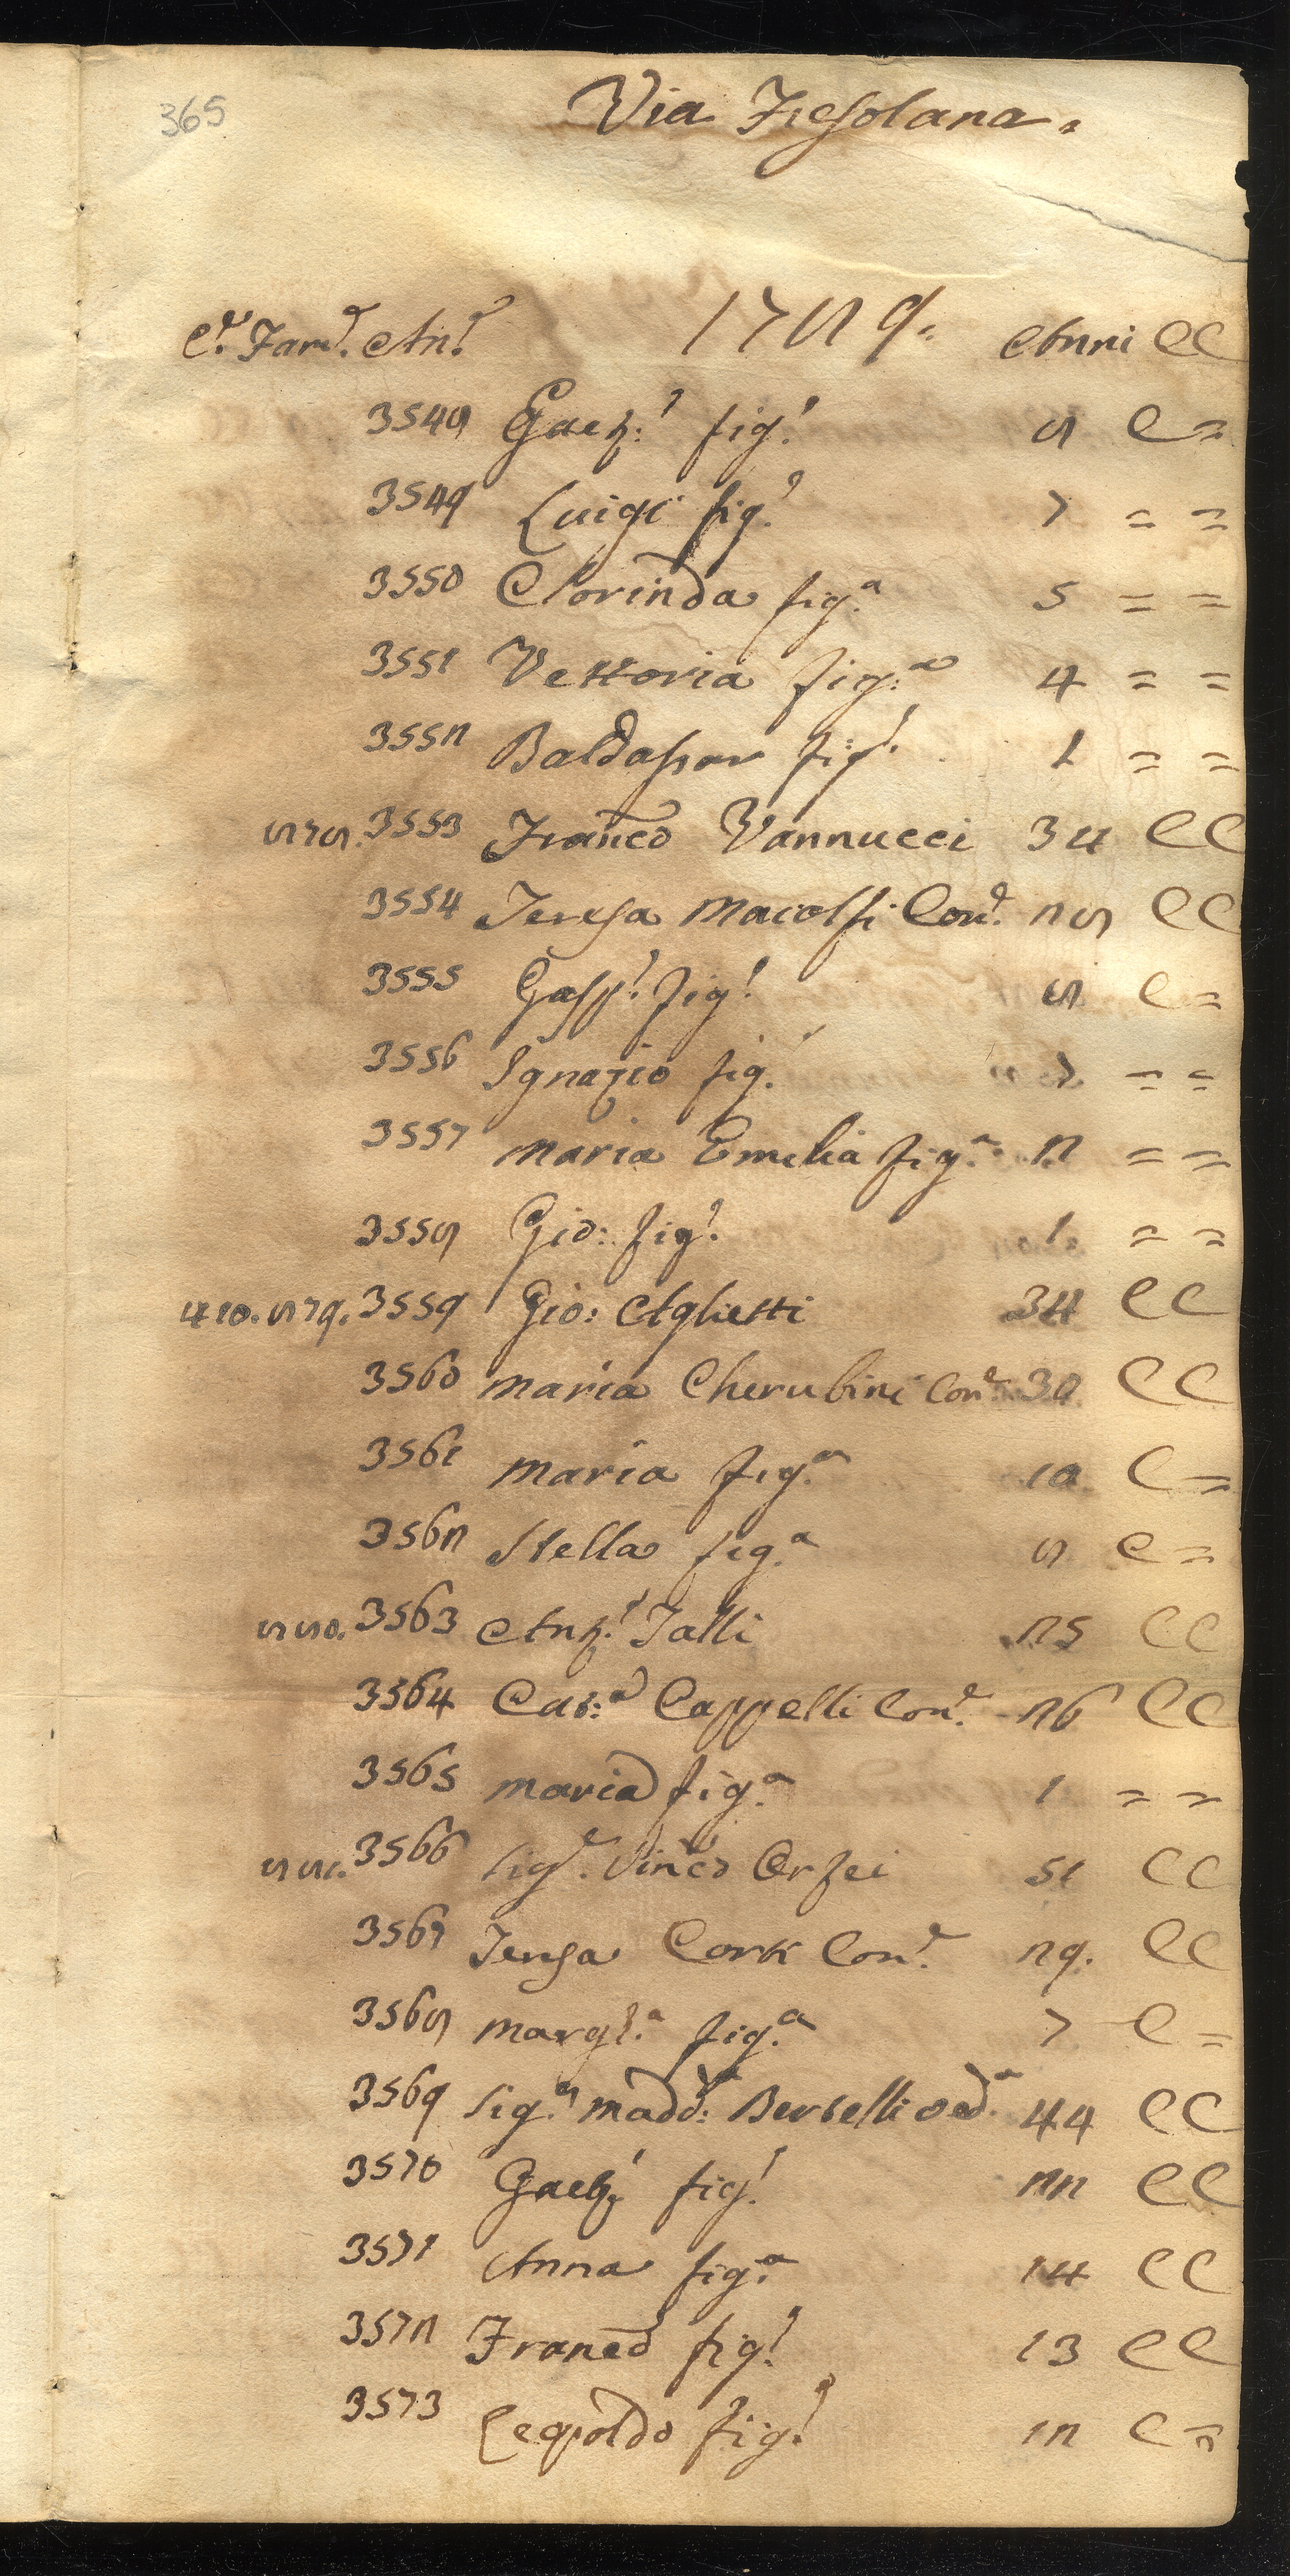 365
Via Fiesolana.
C.e Fam.e An.e 1789. Anni CC
3548 Gaet:o fig.o 8 C =
3549 Luigi fig.o 7 = =
3550 Clorinda fig.a 5 = =
3551 Vettoria fig:a 4 = =
3552 Baldassar fig.o 1 = =
878. 3553 Franco Vannucci 34 CC
3554 Teresa Maiolfi Con.e 28 CC
3555 Gasp.o fig.o 8 C =
3556 Ignazio fig. 7 = =
3557 Maria Emelia fig.a 2 = =
3558 Gio: fig.o 1. = =
410. 879. 3559 Gio: Aglietti 34 CC
3560 Maria Cherubini Con.e 30 CC
3561 Maria fig.a 10 C =
3562 Stella fig.a 8 C =
880. 3563 Ant.o Talli 25 CC
3564 Cat:a Cappelli Con.e 26 CC
3565 Maria fig.a 1 = =
881. 3566 Sig.e Vinco Orfei 51 CC
3567 Teresa Cork Con.e 29. CC
3568 Margh.a fig.a 7 C =
3569 Sig.a Madd:a Berselli ved.a 44 CC
3570 Gaet.o fig.o 22 CC
3571 Anna fig.a 14 CC
3572 Franco fig.o 13 CC
3573 Leopoldo fig.o 12 C =